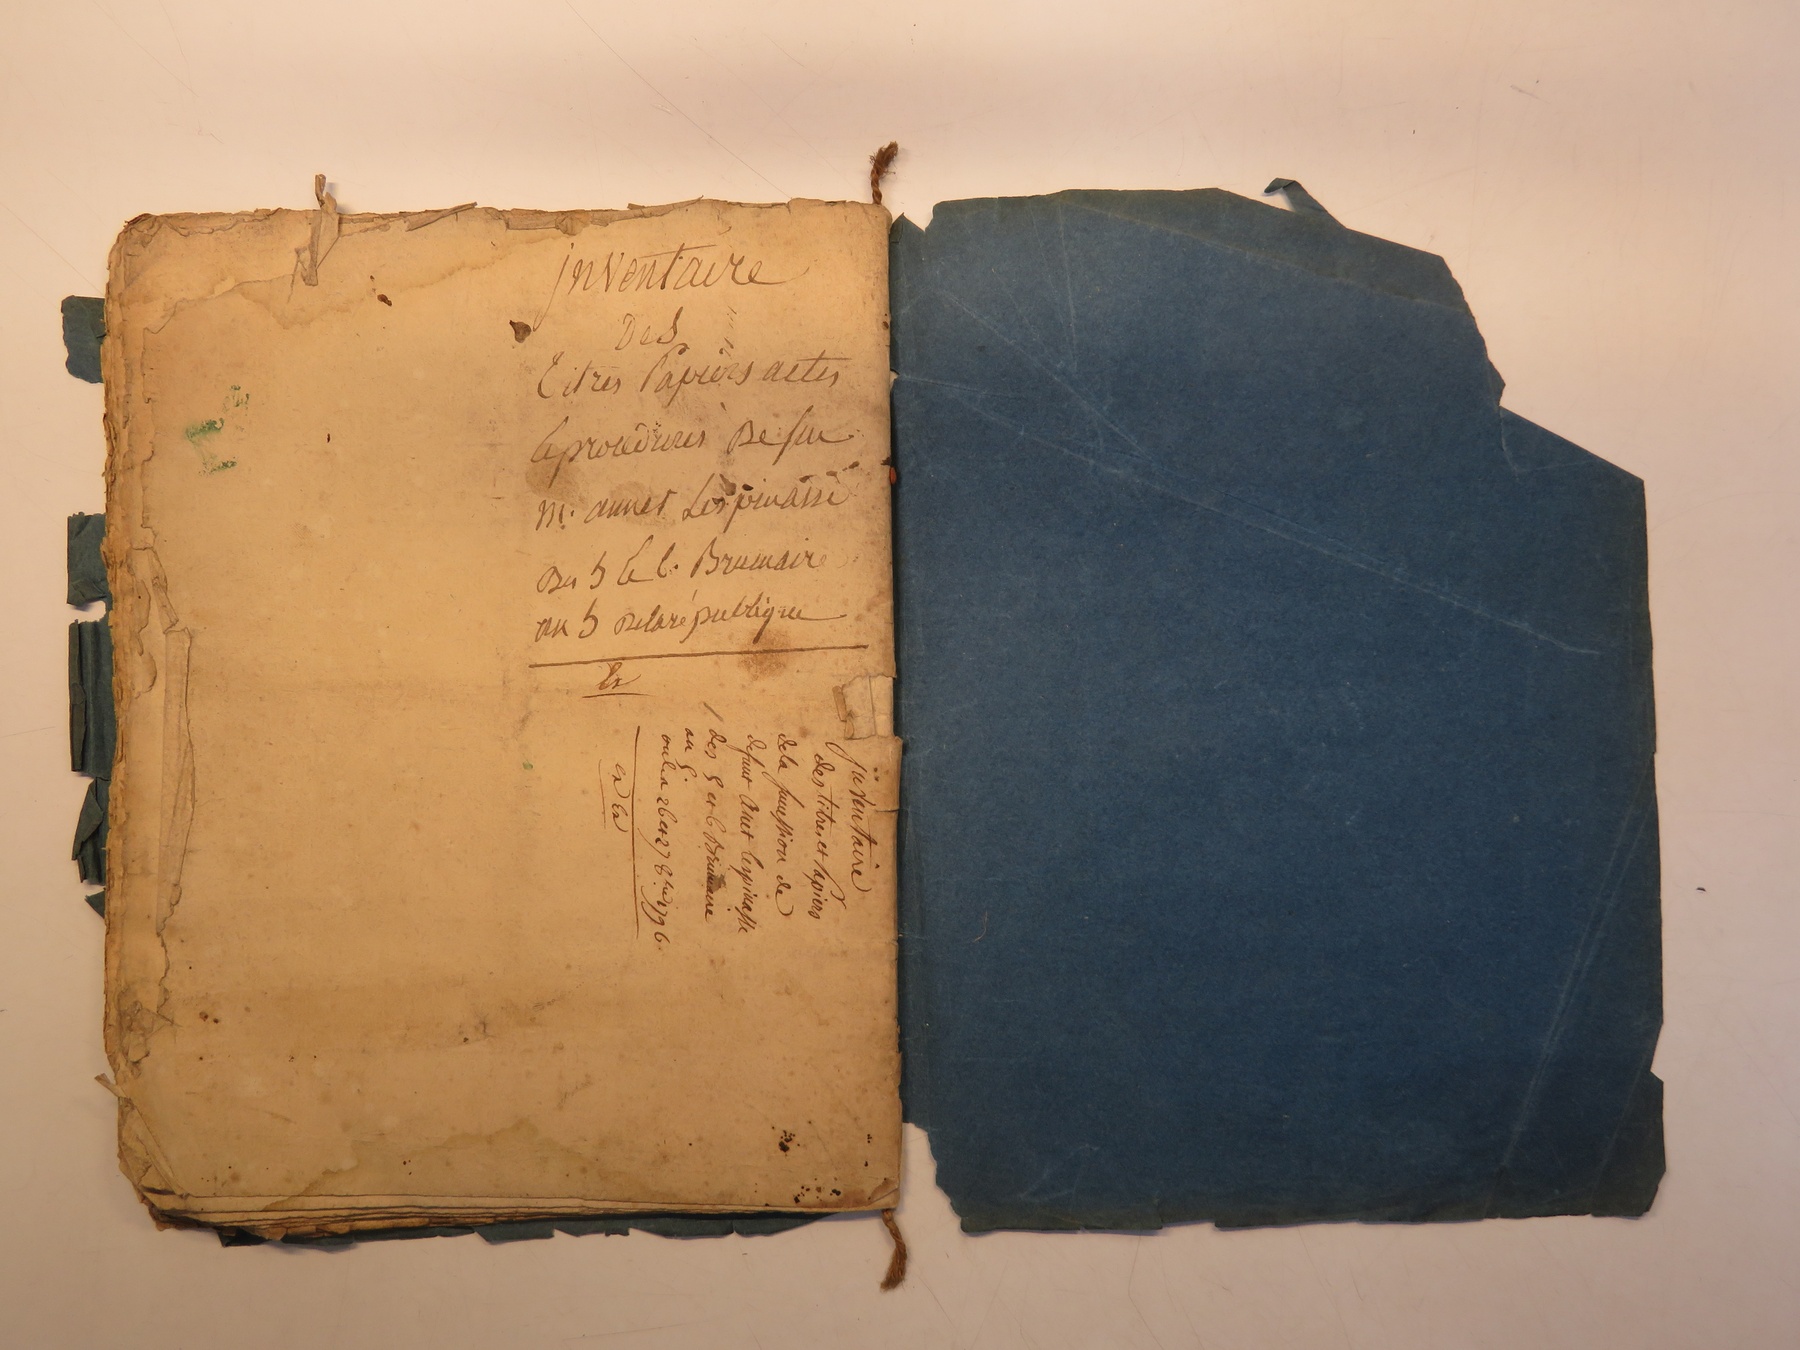 jnventaire
Des
titres papiers actes
& procedures de feu
m. annet Lespinasse
du 5 & 6. Brumaire
an 5 de la république
jnventaire
des titres et papiers
de la succession de
defunt Anet lespinasse
des 5 et 6 Brumaire
an 5.
ou les 26 et 27 8bre 1796